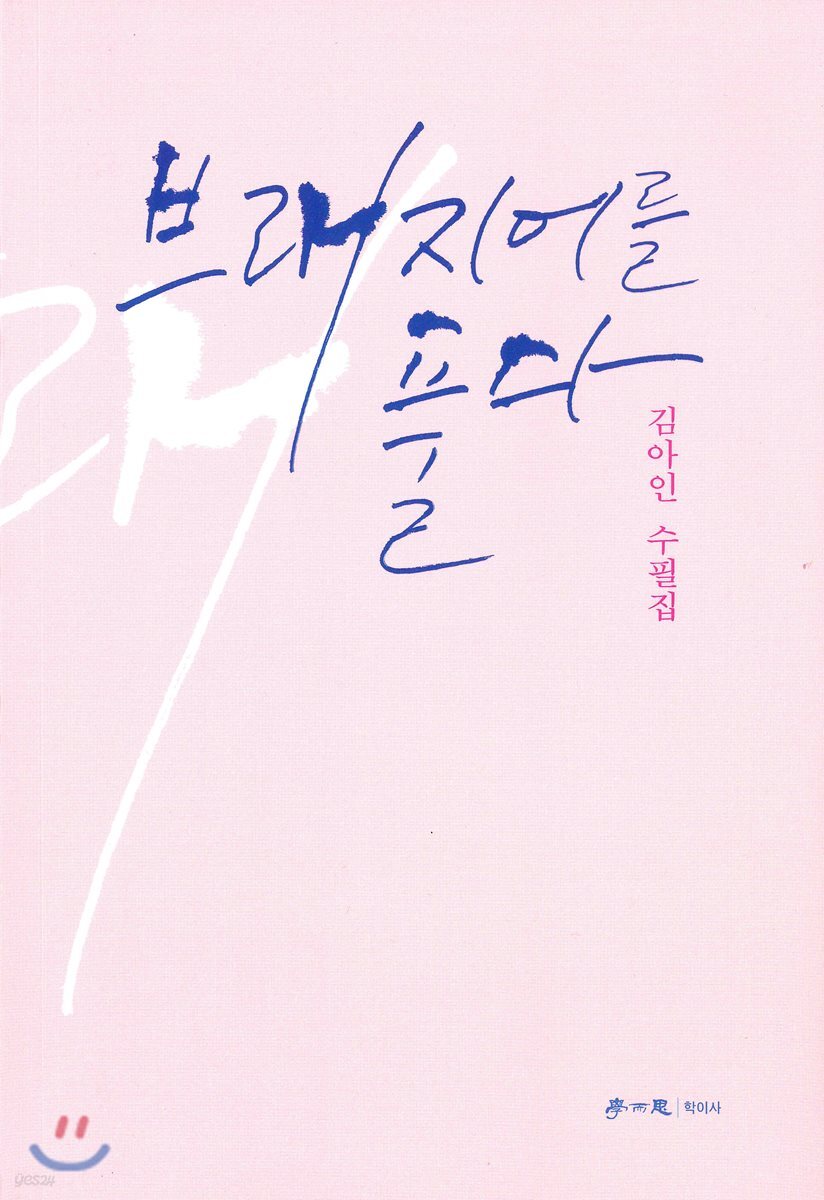 브래지어를
풀다
김아인 수필집
學而思 학이사
yes24